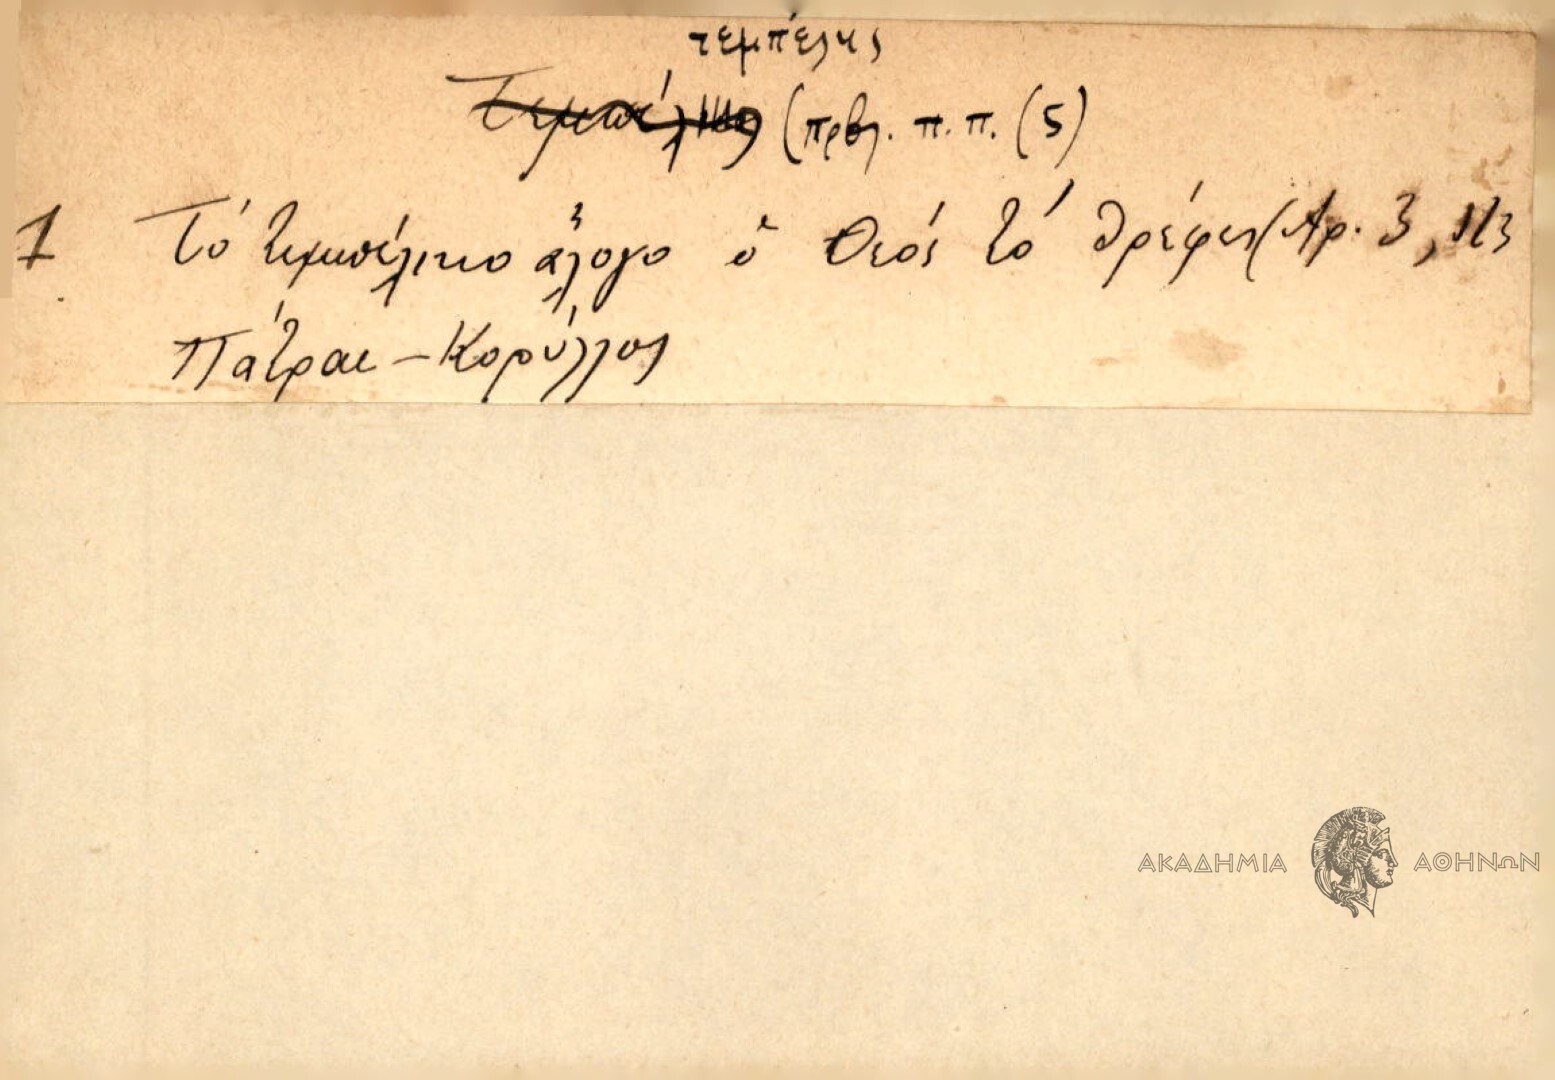 τεμπέλης
(πρβλ. π. π. (5)
1 Τό τεμπέλικο ἄλογο ὁ Θεός τό θρέφει (Αρ. 3, 113
Πάτραι – Κορύλλος
ΑΚΑΔΗΜΙΑ ΑΘΗΝΩΝ